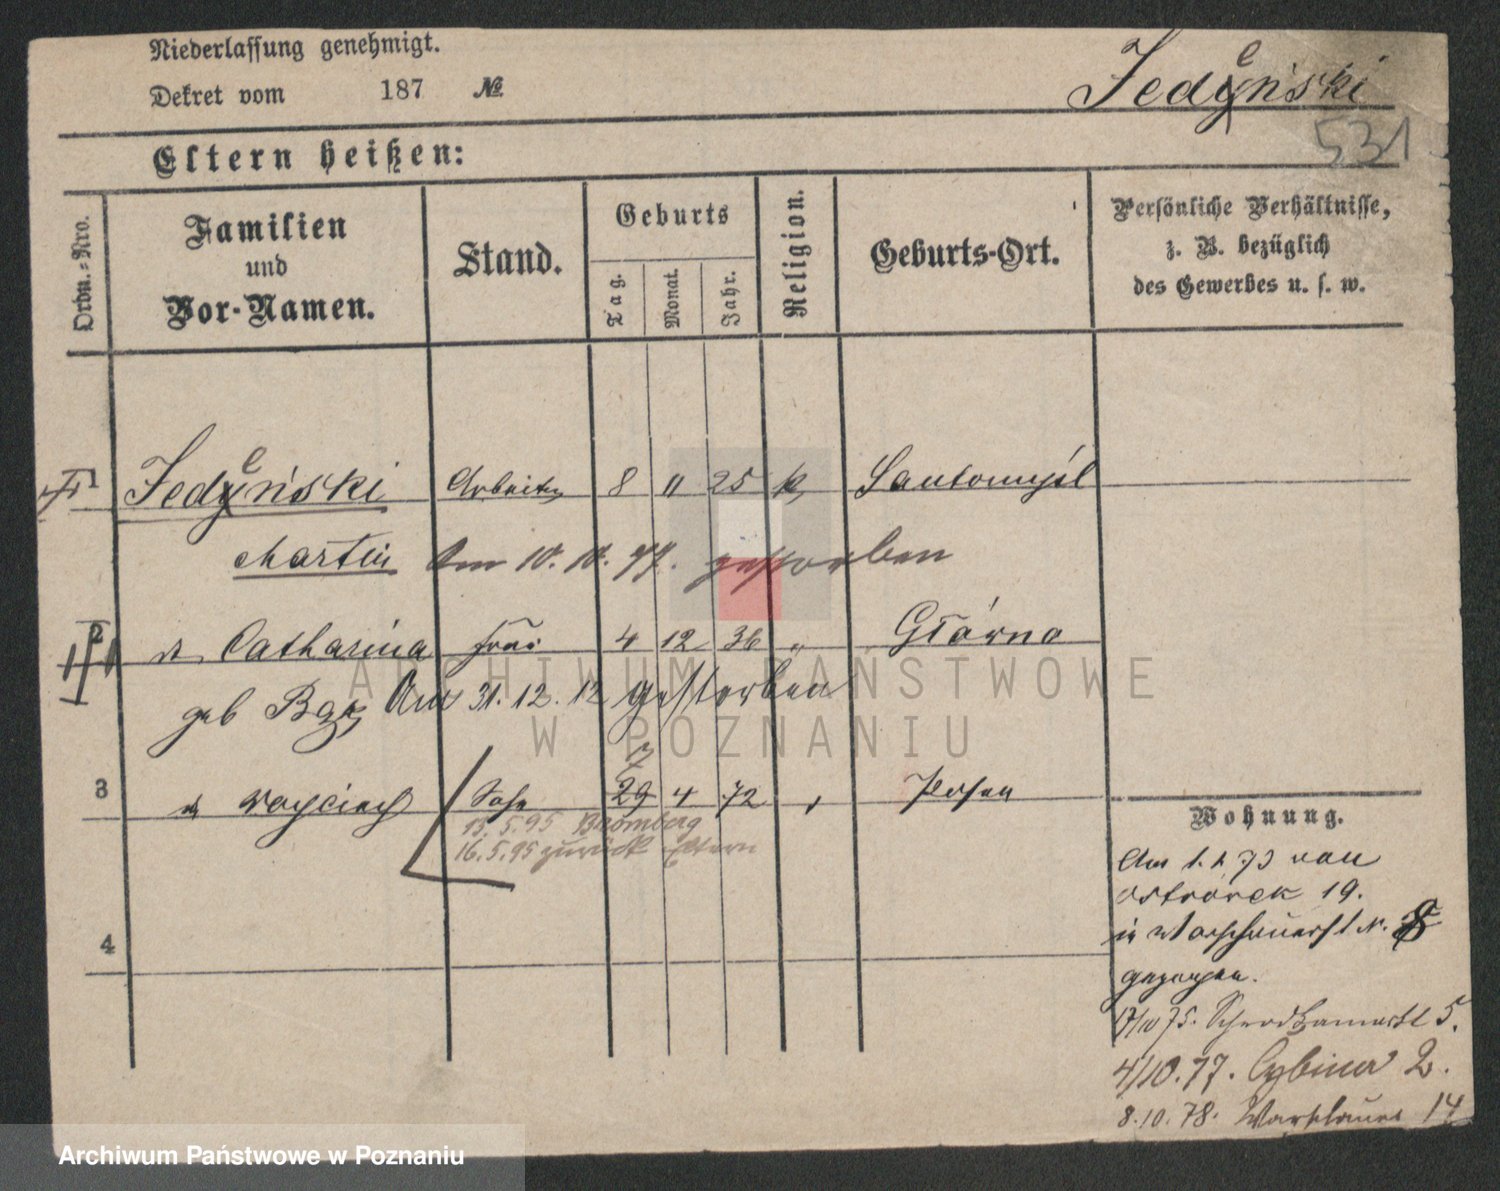 Niederlassung genehmigt.
Dekret vom 187 №
Jedyński
e
531
Eltern heißen:
Ordn.-Nro.
Familien
und
Vor-Namen.
Stand.
Geburts
Tag.
Monat.
Jahr.
Religion.
Geburts-Ort.
Persönliche Verhältnisse,
z. B. bezüglich
des Gewerbes u. s. w.
e
1 Jedyński Arbeiter 8 11 25 k Santomyśl
Martin Am 10. 10. 99. gestorben
2 Catharina Frau 4 12 36 "
geb Am 31. 12. 12 gestorben
7
3 Woyciech Sohn 29 4 72 " Posen
15. 5. 95 Bromberg
16. 5. 95 zurück Eltern
4
Wohnung.
Am 1. 1. 73 von
Ostrówek 19.
in Warschauerst N. 8
gezogen.
17/10 75. Schrodkamarkt 5.
4/10. 77. Cybina 2.
8. 10. 78. Warschauer 14
ARCHIWUM PAŃSTWOWE
W POZNANIU
Archiwum Państwowe w Poznaniu